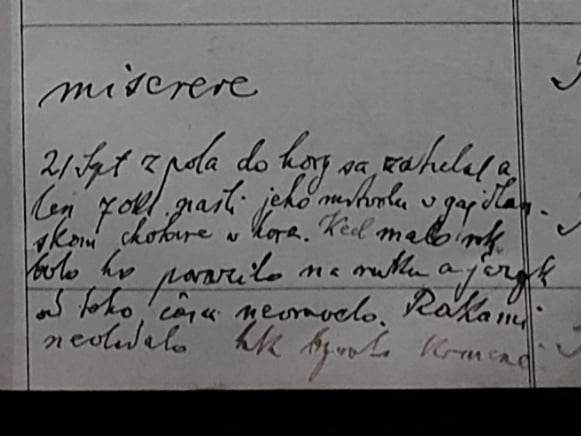 miserere
21 Sept z pola do hory sa zatulal a
len 7 okt. našli jeho mrtvolu v gajdlan-
skom chotare v hore. Keď malo rok
bolo ho porazilo na rutku a jázyk
od toho času nevravelo. Rukami
neovladalo